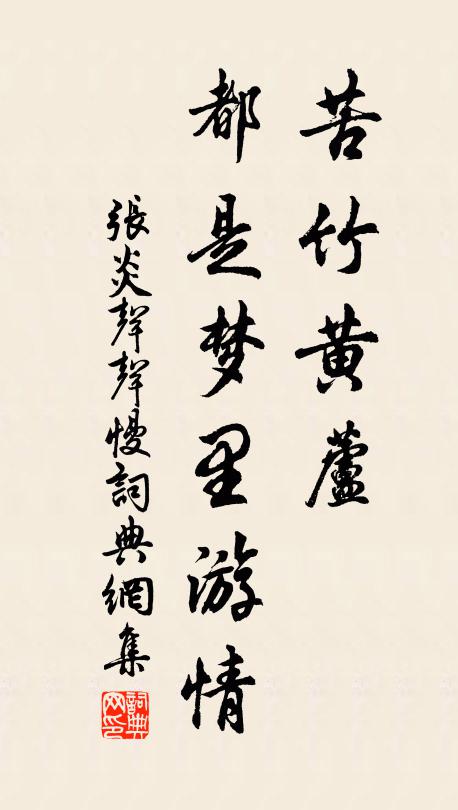 苦竹黄蘆
都是梦里游情
張炎聲聲慢詞典網集
詞典网印